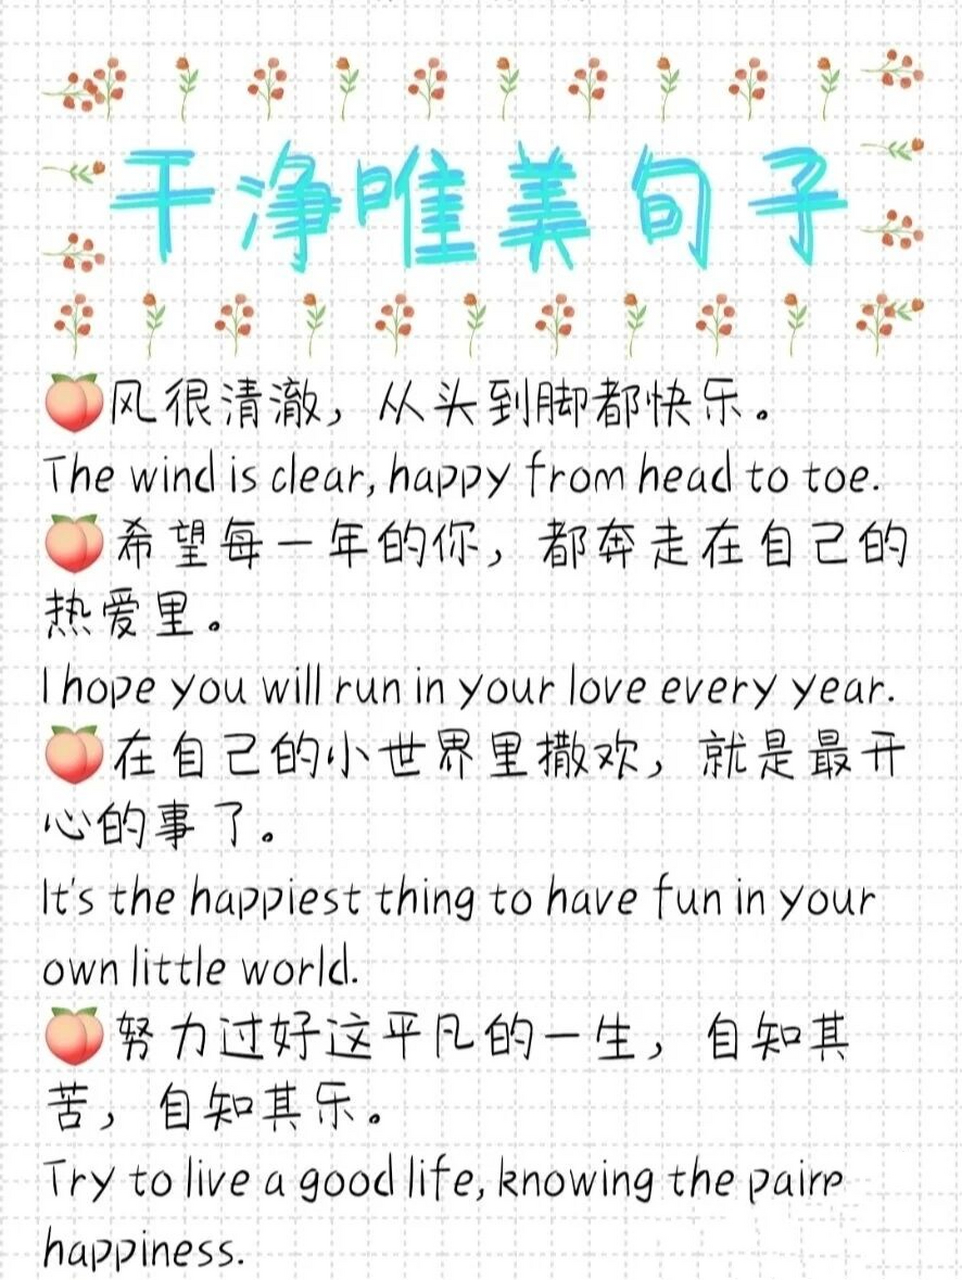 干净唯美句子
风很清澈，从头到脚都快乐。
The wind is clear, happy from head to toe.
希望每一年的你，都奔走在自己的
热爱里。
I hope you will run in your love every year.
在自己的小世界里撒欢，就是最开
心的事了。
It's the happiest thing to have fun in your
own little world.
努力过好这平凡的一生，自知其
苦，自知其乐。
Try to live a good life, knowing the
happiness.